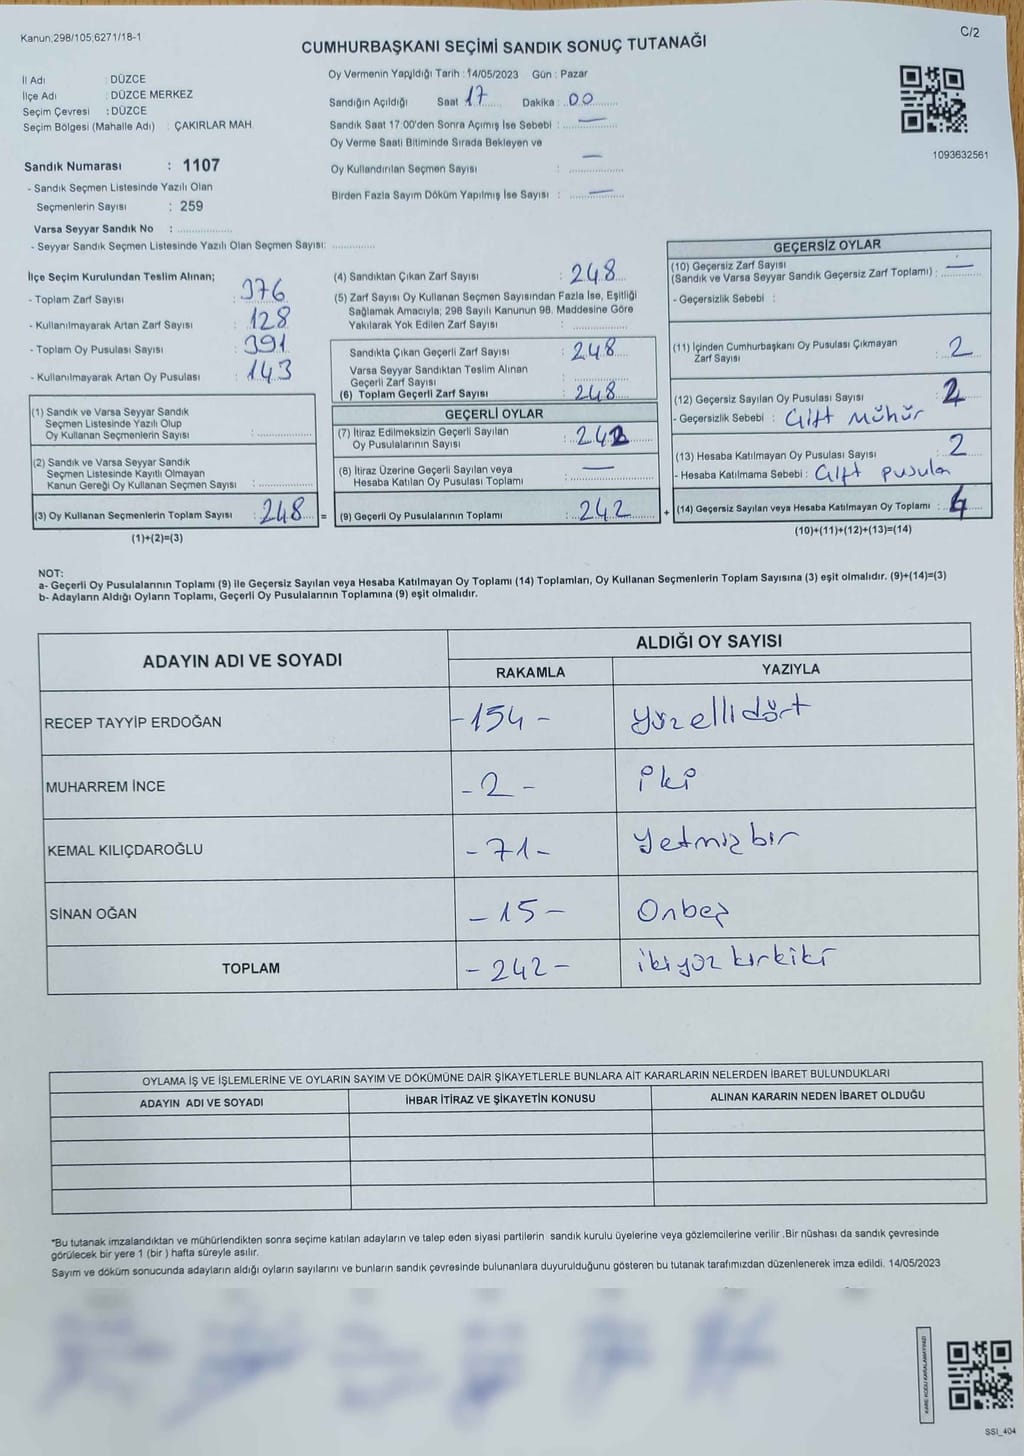 Kanun;298/105;6271/18-1
C/2
CUMHURBAŞKANI SEÇİMİ SANDIK SONUÇ TUTANAĞI
İl Adı : DÜZCE
İlçe Adı : DÜZCE MERKEZ
Seçim Çevresi : DÜZCE
Seçim Bölgesi (Mahalle Adı) : ÇAKIRLAR MAH.
Sandık Numarası : 1107
- Sandık Seçmen Listesinde Yazılı Olan
Seçmenlerin Sayısı : 259
Varsa Seyyar Sandık No :
- Seyyar Sandık Seçmen Listesinde Yazılı Olan Seçmen Sayısı:
Oy Vermenin Yapıldığı Tarih : 14/05/2023 Gün : Pazar
Sandığın Açıldığı Saat 17 Dakika : 00
Sandık Saat 17:00'den Sonra Açımış İse Sebebi : —
Oy Verme Saati Bitiminde Sırada Bekleyen ve
Oy Kullandırılan Seçmen Sayısı : —
Birden Fazla Sayım Döküm Yapılmış İse Sayısı : —
1093632561
İlçe Seçim Kurulundan Teslim Alınan;
- Toplam Zarf Sayısı : 376
- Kullanılmayarak Artan Zarf Sayısı : 128
- Toplam Oy Pusulası Sayısı : 391
- Kullanılmayarak Artan Oy Pusulası : 143
(1) Sandık ve Varsa Seyyar Sandık
Seçmen Listesinde Yazılı Olup
Oy Kullanan Seçmenlerin Sayısı :
(2) Sandık ve Varsa Seyyar Sandık
Seçmen Listesinde Kayıtlı Olmayan
Kanun Gereği Oy Kullanan Seçmen Sayısı :
(3) Oy Kullanan Seçmenlerin Toplam Sayısı : 248 =
(1)+(2)=(3)
(4) Sandıktan Çıkan Zarf Sayısı : 248
(5) Zarf Sayısı Oy Kullanan Seçmen Sayısından Fazla İse, Eşitliği
Sağlamak Amacıyla; 298 Sayılı Kanunun 98. Maddesine Göre
Yakılarak Yok Edilen Zarf Sayısı :
Sandıkta Çıkan Geçerli Zarf Sayısı : 248
Varsa Seyyar Sandıktan Teslim Alınan
Geçerli Zarf Sayısı :
(6) Toplam Geçerli Zarf Sayısı : 248
GEÇERLİ OYLAR
(7) İtiraz Edilmeksizin Geçerli Sayılan
Oy Pusulalarının Sayısı : 242
(8) İtiraz Üzerine Geçerli Sayılan veya
Hesaba Katılan Oy Pusulası Toplamı : —
(9) Geçerli Oy Pusulalarının Toplamı : 242 +
GEÇERSİZ OYLAR
(10) Geçersiz Zarf Sayısı
(Sandık ve Varsa Seyyar Sandık Geçersiz Zarf Toplamı) : —
- Geçersizlik Sebebi :
(11) İçinden Cumhurbaşkanı Oy Pusulası Çıkmayan
Zarf Sayısı : 2
(12) Geçersiz Sayılan Oy Pusulası Sayısı : 2
- Geçersizlik Sebebi : Çift Mühür
(13) Hesaba Katılmayan Oy Pusulası Sayısı : 2
- Hesaba Katılmama Sebebi : Çift pusula
(14) Geçersiz Sayılan veya Hesaba Katılmayan Oy Toplamı :
(10)+(11)+(12)+(13)=(14)
NOT:
a- Geçerli Oy Pusulalarının Toplamı (9) ile Geçersiz Sayılan veya Hesaba Katılmayan Oy Toplamı (14) Toplamları, Oy Kullanan Seçmenlerin Toplam Sayısına (3) eşit olmalıdır. (9)+(14)=(3)
b- Adayların Aldığı Oyların Toplamı, Geçerli Oy Pusulalarının Toplamına (9) eşit olmalıdır.
ADAYIN ADI VE SOYADI
ALDIĞI OY SAYISI
RAKAMLA YAZIYLA
RECEP TAYYİP ERDOĞAN -154- yüzellidört
MUHARREM İNCE -2- iki
KEMAL KILIÇDAROĞLU -71- Yetmişbir
SİNAN OĞAN -15- Onbeş
TOPLAM -242- ikiyüz kırkiki
OYLAMA İŞ VE İŞLEMLERİNE VE OYLARIN SAYIM VE DÖKÜMÜNE DAİR ŞİKAYETLERLE BUNLARA AİT KARARLARIN NELERDEN İBARET BULUNDUKLARI
ADAYIN ADI VE SOYADI İHBAR İTİRAZ VE ŞİKAYETİN KONUSU ALINAN KARARIN NEDEN İBARET OLDUĞU
"Bu tutanak imzalandıktan ve mühürlendikten sonra seçime katılan adayların ve talep eden siyasi partilerin sandık kurulu üyelerine veya gözlemcilerine verilir .Bir nüshası da sandık çevresinde
görülecek bir yere 1 (bir ) hafta süreyle asılır.
Sayım ve döküm sonucunda adayların aldığı oyların sayılarını ve bunların sandık çevresinde bulunanlara duyurulduğunu gösteren bu tutanak tarafımızdan düzenlenerek imza edildi. 14/05/2023
KARE KODU KARALAMAYINIZ!
SSI_404